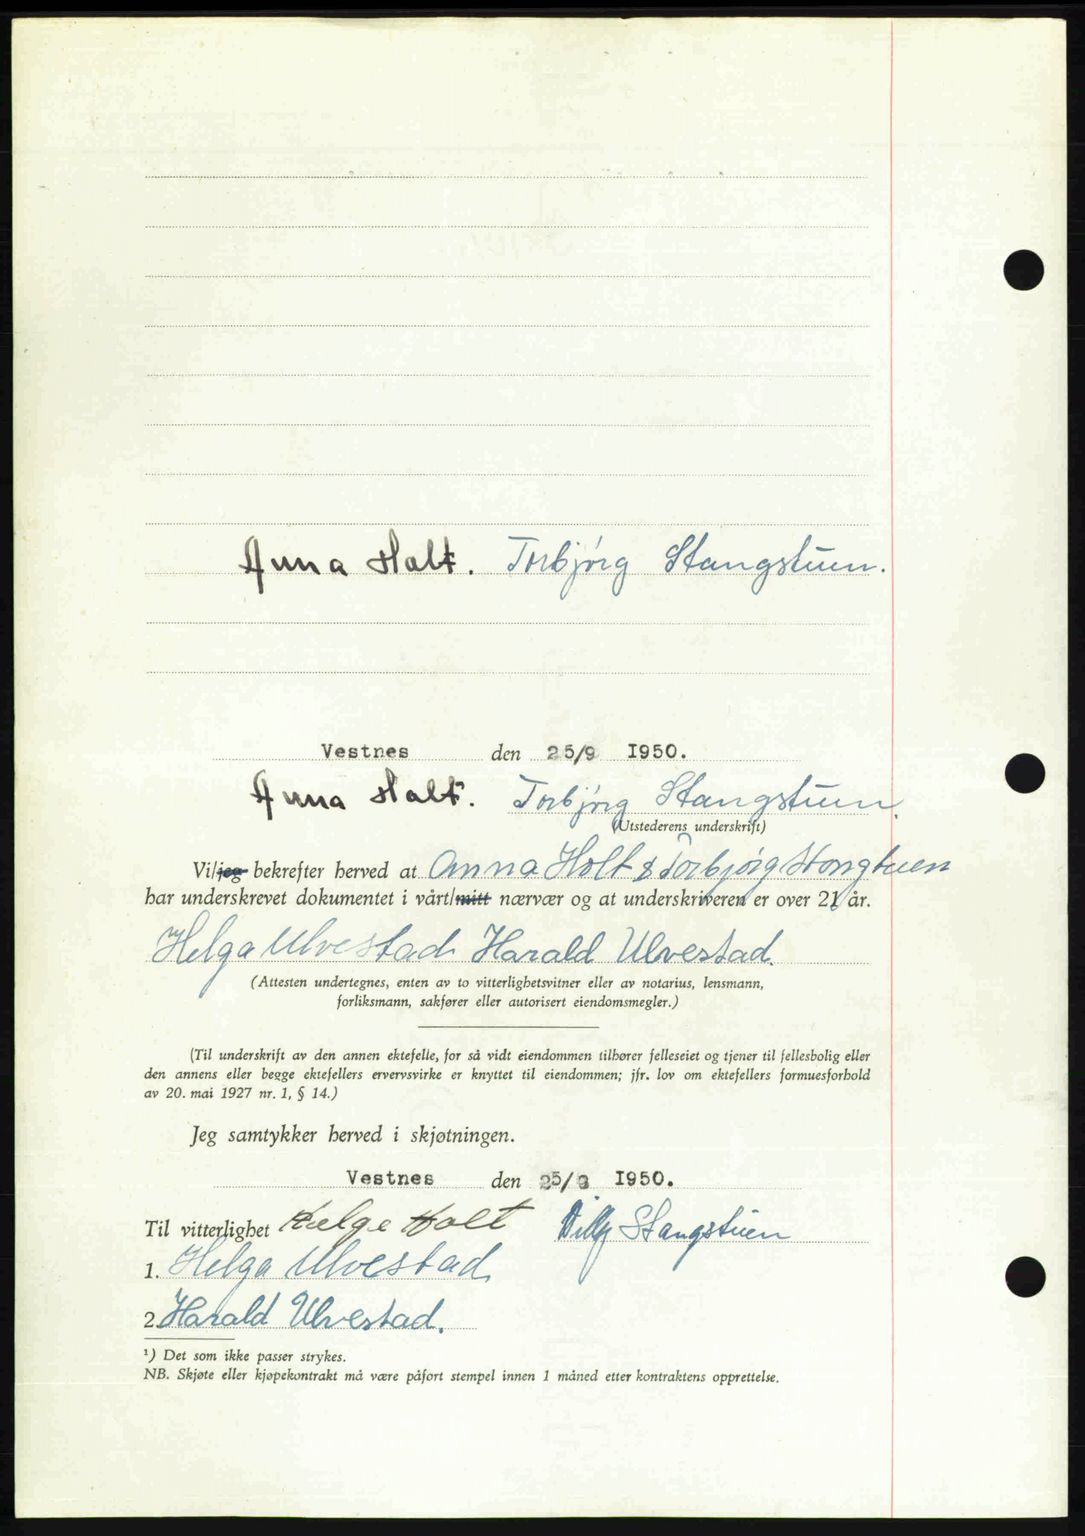 Anna Holt. Torbjørg Stangstuen.
Vestnes den 25/9 1950.
Anna Holt. Torbjørg Stangstuen.
(Utstederens underskrift)
Vi/jeg bekrefter herved at Anna Holt & Torbjørg Stongtuen
har underskrevet dokumentet i vårt/mitt nærvær og at underskriveren er over 21 år.
Helga Ulvestad Harald Ulvestad.
(Attesten undertegnes, enten av to vitterlighetsvitner eller av notarius, lensmann,
forliksmann, sakfører eller autorisert eiendomsmegler.)
(Til underskrift av den annen ektefelle, for så vidt eiendommen tilhører felleseiet og tjener til fellesbolig eller
den annens eller begge ektefellers ervervsvirke er knyttet til eiendommen; jfr. lov om ektefellers formuesforhold
av 20. mai 1927 nr. 1, § 14.)
Jeg samtykker herved i skjøtningen.
Vestnes den 25/9 1950.
Til vitterlighet Helge Holt Willy Stangstuen
1. Helga Ulvestad
2. Harald Ulvestad.
¹) Det som ikke passer strykes.
NB. Skjøte eller kjøpekontrakt må være påført stempel innen 1 måned etter kontraktens opprettelse.